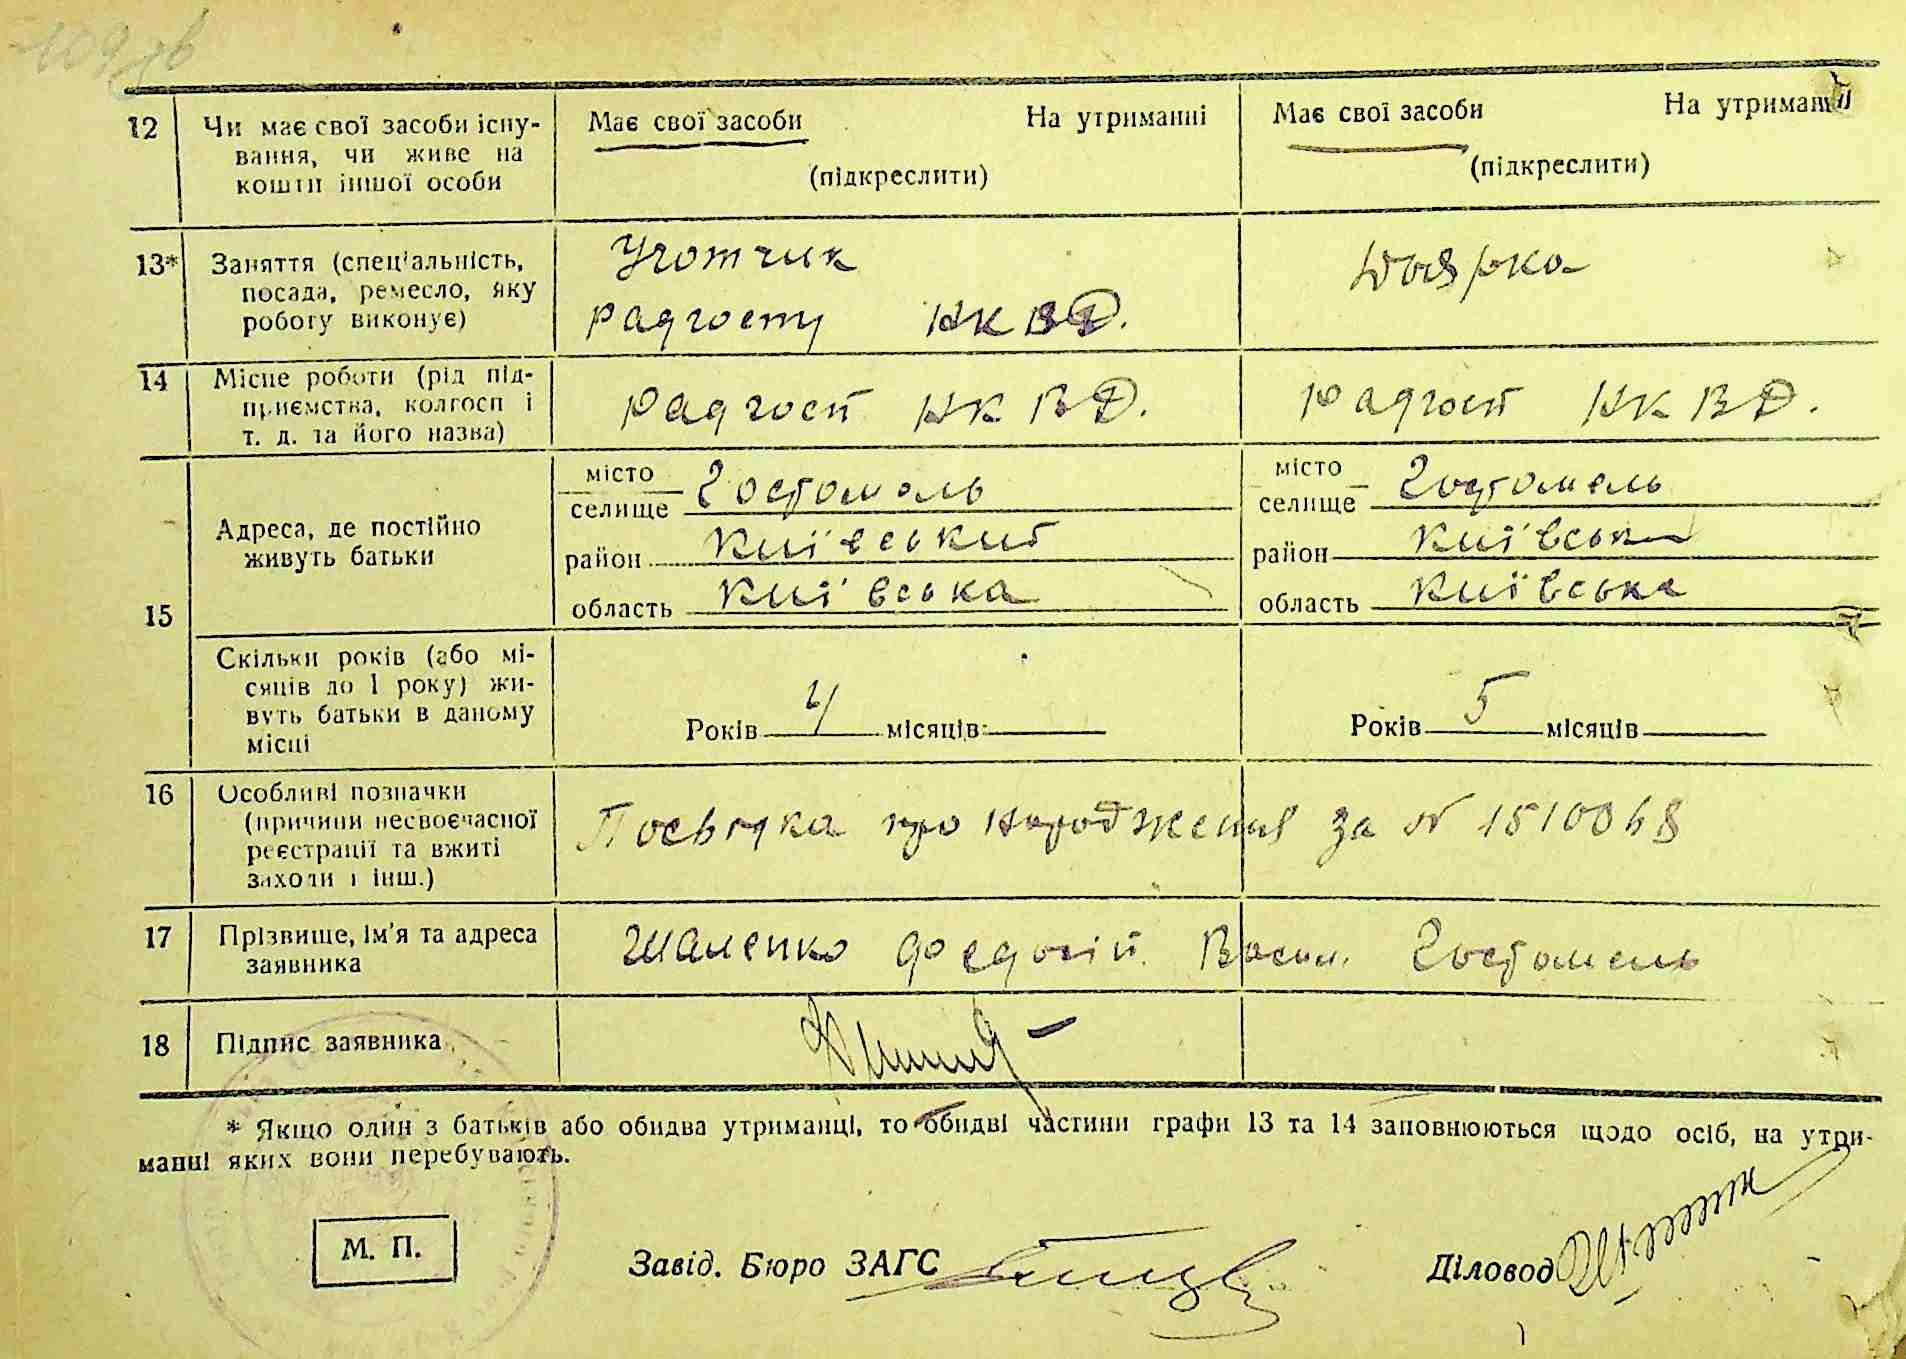 109 зв
12 Чи має свої засоби існу-
вання, чи живе на
кошти іншої особи
Має свої засоби На утриманні
(підкреслити)
Має свої засоби На утриманні
(підкреслити)
13* Заняття (спеціальність,
посада, ремесло, яку
роботу виконує)
Учотчик
радгоспу НКВД.
Доярка
14 Місце роботи (рід під-
приємства, колгосп і
т. д. та його назва)
Радгосп НКВД.
Радгосп НКВД.
15
Адреса, де постійно
живуть батьки
місто
селище Гостомель
район Київський
область Київська
місто
селище Гостомель
район Київськ
область Київська
15
Скільки років (або мі-
сяців до 1 року) жи-
вуть батьки в даному
місці
Років 4 місяців
Років 5 місяців
16 Особливі позначки
(причини несвоєчасної
реєстрації та вжиті
заходи і інш.)
Посвідка про народження за № 1510068
17 Прізвище, ім'я та адреса
заявника
Шаленко Федосій Васил. Гостомель
18 Підпис заявника
* Якщо один з батьків або обидва утриманці, то обидві частини графи 13 та 14 заповнюються щодо осіб, на утри-
манні яких вони перебувають.
М. П.
Завід. Бюро ЗАГС
Діловод